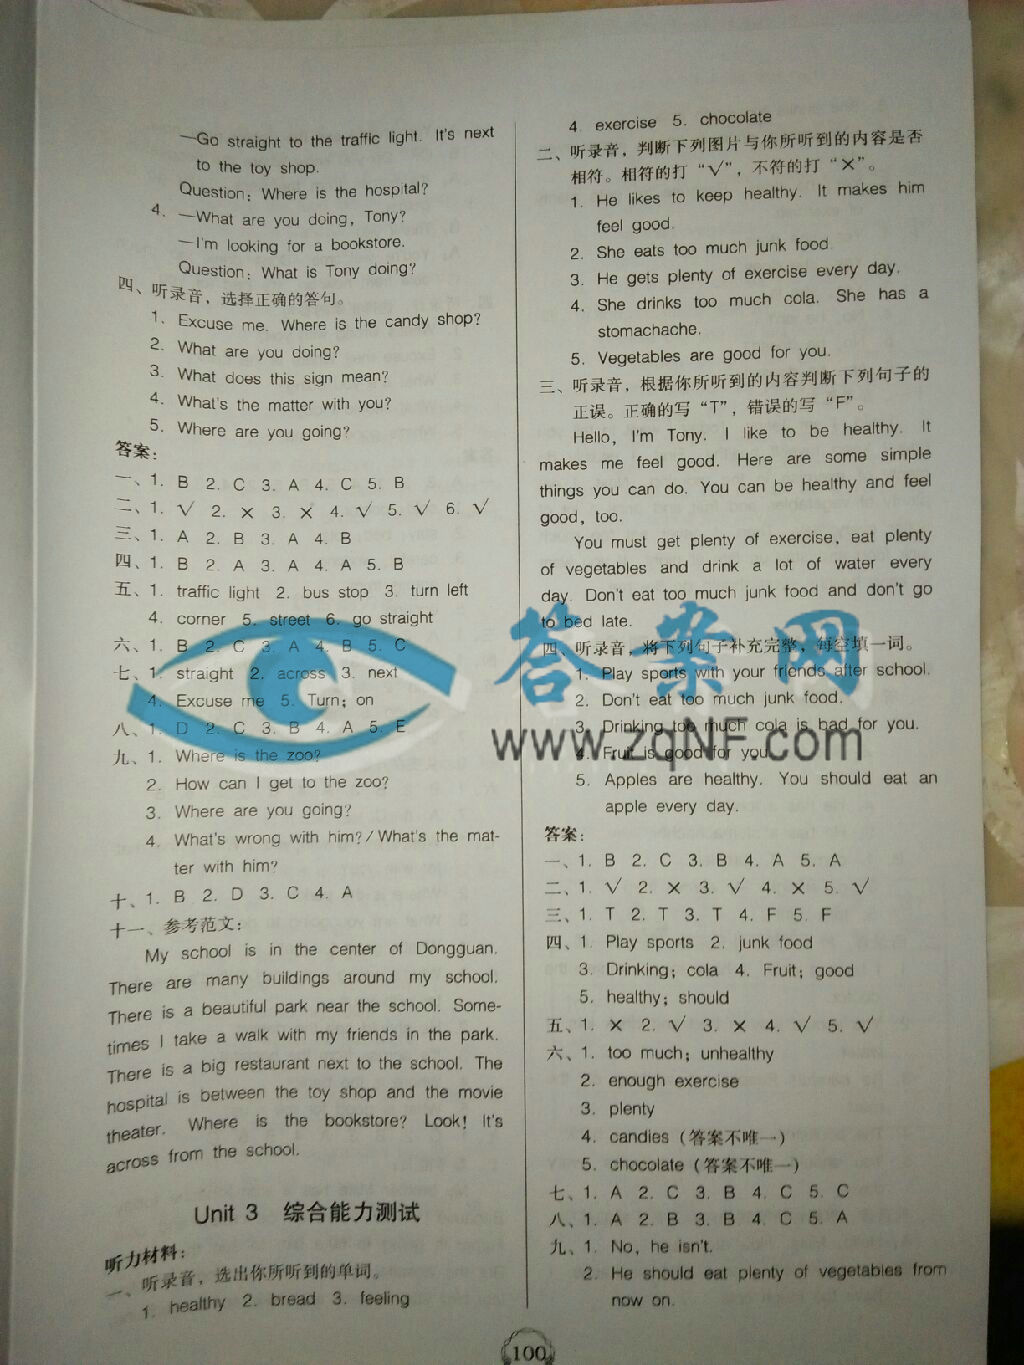 —Go straight to the traffic light. It's next
to the toy shop.
Question: Where is the hospital?
4. —What are you doing, Tony?
—I'm looking for a bookstore.
Question: What is Tony doing?
四、听录音，选择正确的答句。
1. Excuse me. Where is the candy shop?
2. What are you doing?
3. What does this sign mean?
4. What's the matter with you?
5. Where are you going?
答案:
一、1. B 2. C 3. A 4. C 5. B
二、1. √ 2. × 3. × 4. √ 5. √ 6. √
三、1. A 2. B 3. A 4. B
四、1. B 2. A 3. A 4. A 5. B
五、1. traffic light 2. bus stop 3. turn left
4. corner 5. street 6. go straight
六、1. B 2. C 3. A 4. B 5. C
七、1. straight 2. across 3. next
4. Excuse me 5. Turn; on
八、1. D 2. C 3. B 4. A 5. E
九、1. Where is the zoo?
2. How can I get to the zoo?
3. Where are you going?
4. What's wrong with him?/What's the mat-
ter with him?
十、1. B 2. D 3. C 4. A
十一、参考范文:
My school is in the center of Dongguan.
There are many buildings around my school.
There is a beautiful park near the school. Some-
times I take a walk with my friends in the park.
There is a big restaurant next to the school. The
hospital is between the toy shop and the movie
theater. Where is the bookstore? Look! It's
across from the school.
Unit 3 综合能力测试
听力材料:
一、听录音，选出你所听到的单词。
1. healthy 2. bread 3. feeling
4. exercise 5. chocolate
二、听录音，判断下列图片与你所听到的内容是否
相符。相符的打“√”，不符的打“×”。
1. He likes to keep healthy. It makes him
feel good.
2. She eats too much junk food.
3. He gets plenty of exercise every day.
4. She drinks too much cola. She has a
stomachache.
5. Vegetables are good for you.
三、听录音，根据你所听到的内容判断下列句子的
正误。正确的写“T”，错误的写“F”。
Hello, I'm Tony. I like to be healthy. It
makes me feel good. Here are some simple
things you can do. You can be healthy and feel
good, too.
You must get plenty of exercise, eat plenty
of vegetables and drink a lot of water every
day. Don't eat too much junk food and don't go
to bed late.
四、听录音，将下列句子补充完整，每空填一词。
1. Play sports with your friends after school.
2. Don't eat too much junk food.
3. Drinking too much cola is bad for you.
4. Fruit is good for you.
5. Apples are healthy. You should eat an
apple every day.
答案:
一、1. B 2. C 3. B 4. A 5. A
二、1. √ 2. × 3. √ 4. × 5. √
三、1. T 2. T 3. T 4. F 5. F
四、1. Play sports 2. junk food
3. Drinking; cola 4. Fruit; good
5. healthy; should
五、1. × 2. √ 3. × 4. √ 5. √
六、1. too much; unhealthy
2. enough exercise
3. plenty
4. candies (答案不唯一)
5. chocolate (答案不唯一)
七、1. A 2. C 3. B 4. C 5. C
八、1. A 2. B 3. B 4. C 5. A
九、1. No, he isn't.
2. He should eat plenty of vegetables from
now on.
100
答案网
www.zqNF.com